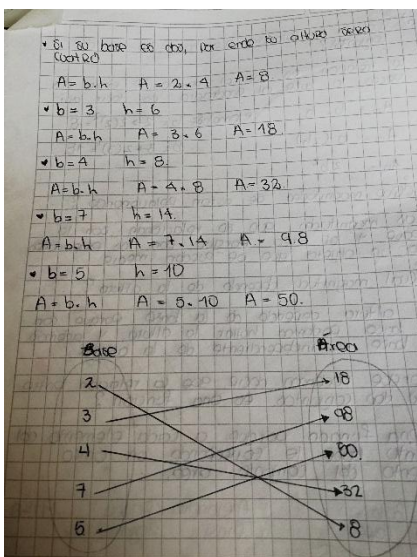 • Si su base es dos, por ende su altura sera
cuatro
A = b.h A = 2.4 A = 8
• b = 3 h = 6
A = b.h A = 3.6 A = 18.
• b = 4 h = 8.
A = b.h A = 4.8 A = 32
• b = 7 h = 14.
A = b.h A = 7.14 A = 98
• b = 5 h = 10
A = b.h A = 5.10 A = 50.
Base Área
2 18
3 98
4 50
7 32
5 8